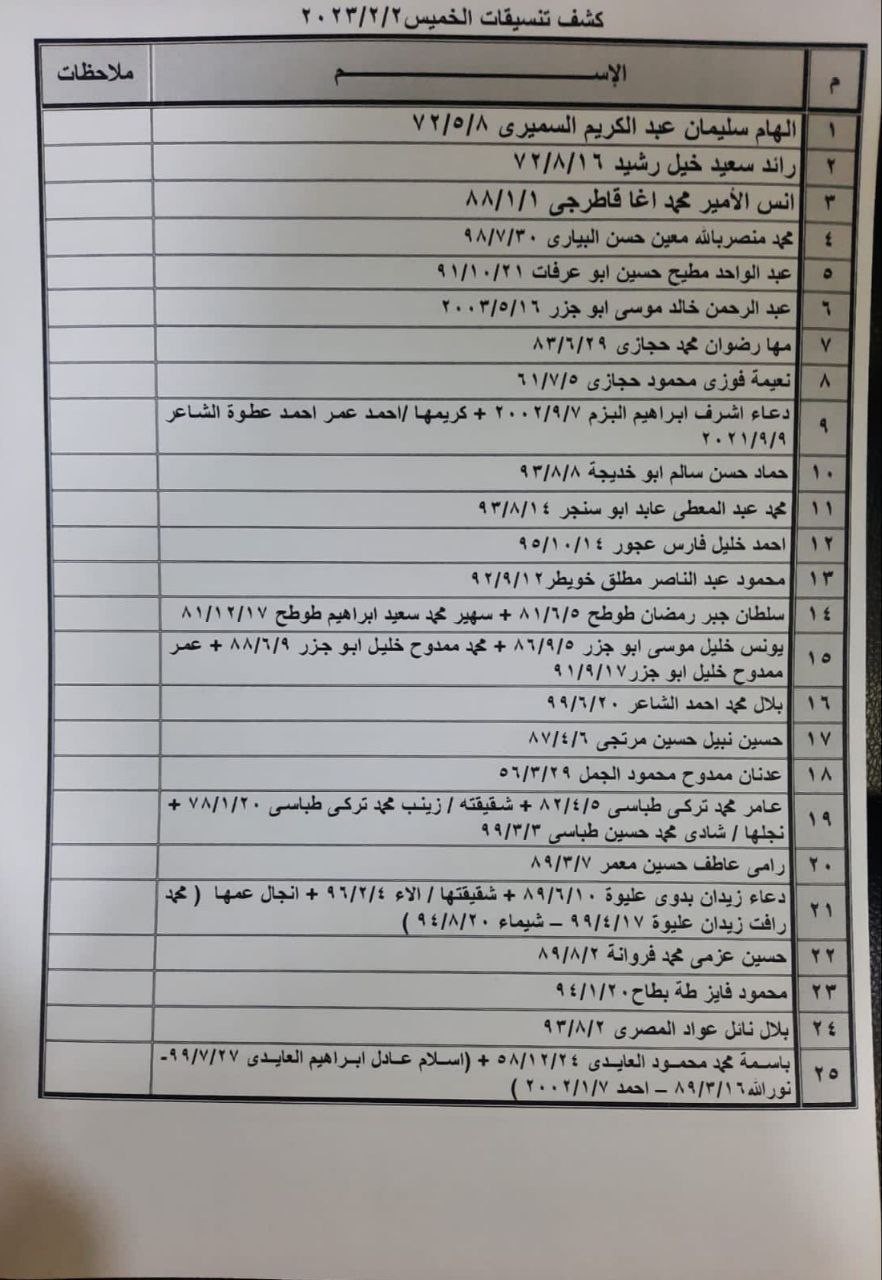 كشف تنسيقات الخميس ٢٠٢٣/٢/٢
م الإســـم ملاحظات
١ الهام سليمان عبد الكريم السميرى ٧٢/٥/٨
٢ رائد سعيد خيل رشيد ٧٢/٨/١٦
٣ انس الأمير محمد اغا قاطرجى ٨٨/١/١
٤ محمد منصربالله معين حسن البيارى ٩٨/٧/٣٠
٥ عبد الواحد مطيح حسين ابو عرفات ٩١/١٠/٢١
٦ عبد الرحمن خالد موسى ابو جزر ٢٠٠٣/٥/١٦
٧ مها رضوان محمد حجازى ٨٣/٦/٢٩
٨ نعيمة فوزى محمود حجازى ٦١/٧/٥
٩ دعاء اشرف ابراهيم البزم ٢٠٠٢/٩/٧ + كريمها /احمد عمر احمد عطوة الشاعر
٢٠٢١/٩/٩
١٠ حماد حسن سالم ابو خديجة ٩٣/٨/٨
١١ محمد عبد المعطى عابد ابو سنجر ٩٣/٨/١٤
١٢ احمد خليل فارس عجور ٩٥/١٠/١٤
١٣ محمود عبد الناصر مطلق خويطر٩٢/٩/١٢
١٤ سلطان جبر رمضان طوطح ٨١/٦/٥ + سهير محمد سعيد ابراهيم طوطح ٨١/١٢/١٧
١٥ يونس خليل موسى ابو جزر ٨٦/٩/٥ + محمد ممدوح خليل ابو جزر ٨٨/٦/٩ + عمر
ممدوح خليل ابو جزر٩١/٩/١٧
١٦ بلال محمد احمد الشاعر ٩٩/٦/٢٠
١٧ حسين نبيل حسين مرتجى ٨٧/٤/٦
١٨ عدنان ممدوح محمود الجمل ٥٦/٣/٢٩
١٩ عامر محمد تركى طباسى ٨٢/٤/٥ + شقيقته / زينب محمد تركى طباسى ٧٨/١/٢٠ +
نجلها / شادى محمد حسين طباسى ٩٩/٣/٣
٢٠ رامى عاطف حسين معمر ٨٩/٣/٧
٢١ دعاء زيدان بدوى عليوة ٨٩/٦/١٠ + شقيقتها / الاء ٩٦/٢/٤ + انجال عمها ( محمد
رافت زيدان عليوة ٩٩/٤/١٧ – شيماء ٩٤/٨/٢٠ )
٢٢ حسين عزمى محمد فروانة ٨٩/٨/٢
٢٣ محمود فايز طة بطاح٩٤/١/٢٠
٢٤ بلال نائل عواد المصرى ٩٣/٨/٢
٢٥ باسمة محمد محمود العايدى ٥٨/١٢/٢٤ + (اسلام عادل ابراهيم العايدى ٩٩/٧/٢٧-
نورالله٨٩/٣/١٦ – احمد ٢٠٠٢/١/٧ )